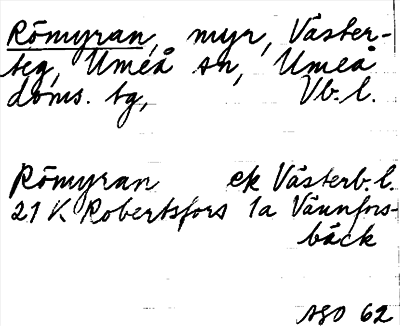 Römyran, myr, Väster-
teg, Umeå sn, Umeå
doms. tg, Vb. l.
Römyran ek Västerb. l.
21 K Robertsfors 1a Vännfors-
bäck
ASO 62